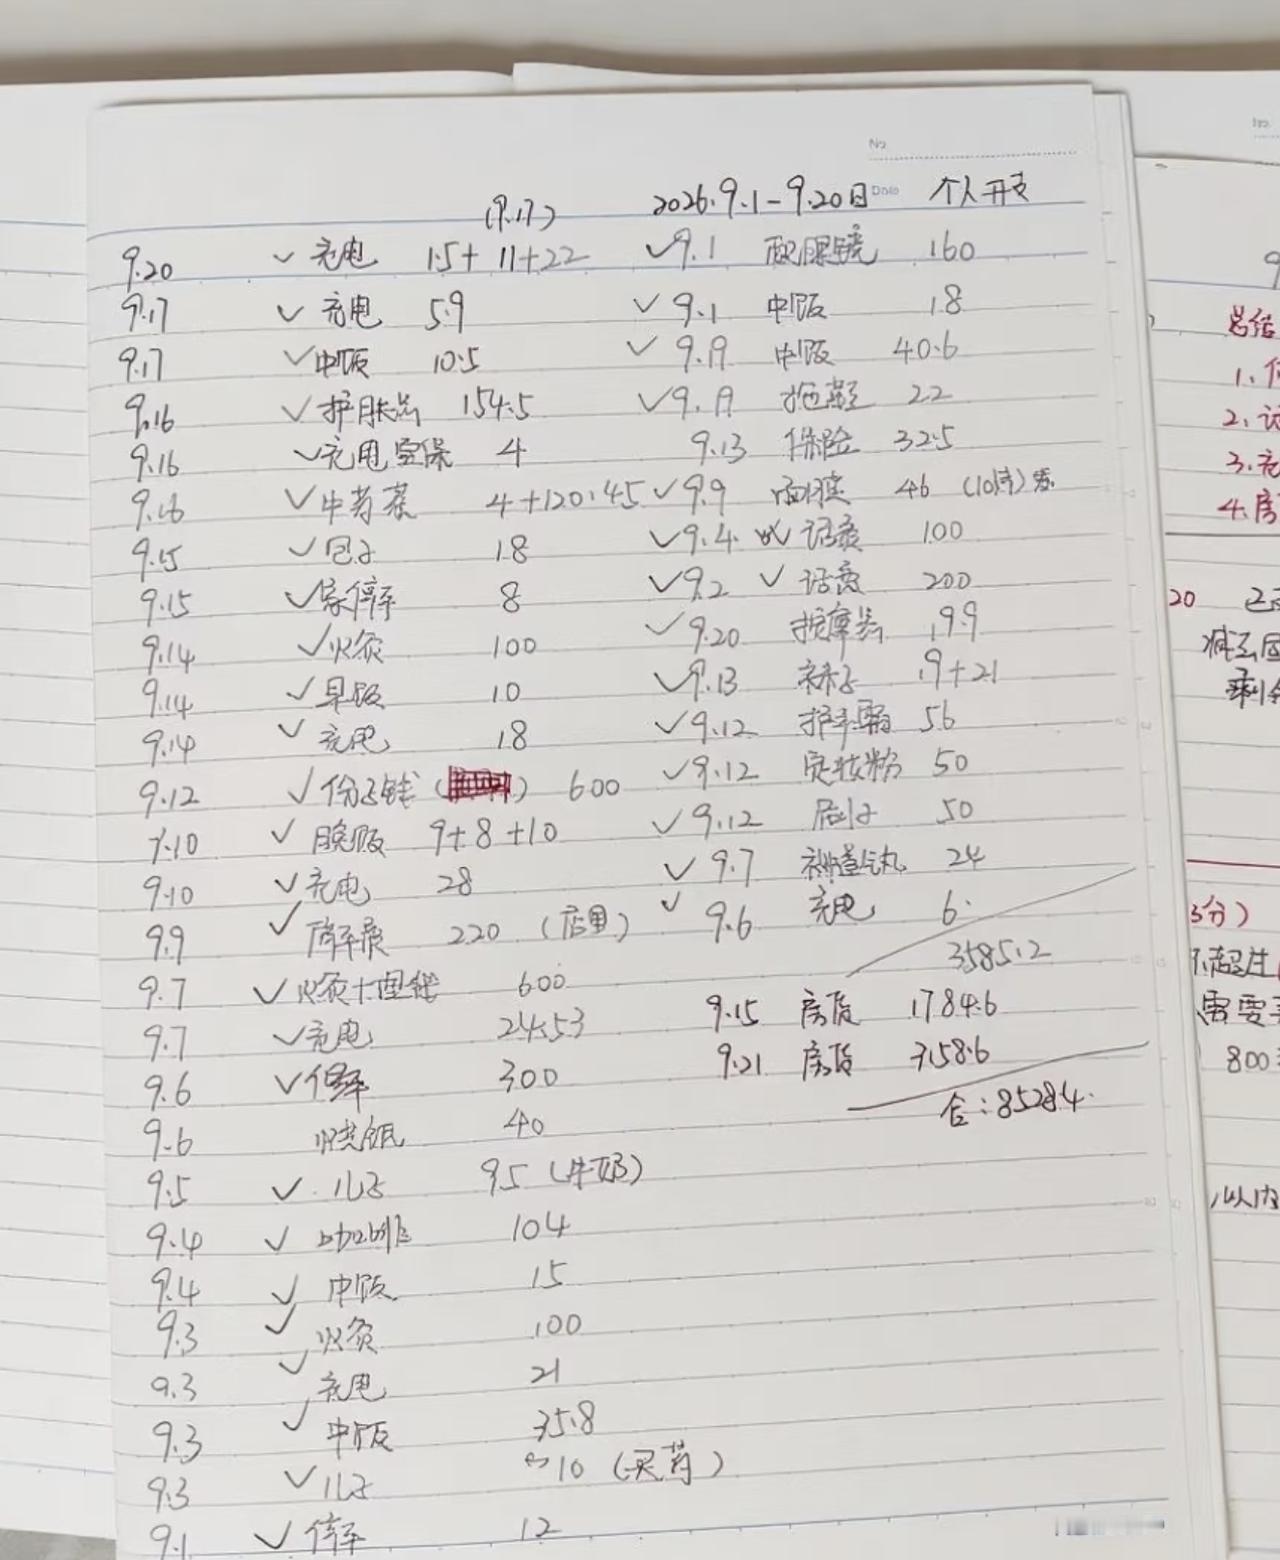 No.
Date
(9.17) 2026.9.1-9.20日 个人开支
9.20 ✓ 充电 15+11+22
9.17 ✓ 充电 5.9
9.17 ✓ 中饭 10.5
9.16 ✓ 护肤品 154.5
9.16 ✓ 充电宝保 4
9.16 ✓ 中药茶 4+120.45
9.15 ✓ 包子 18
9.15 ✓ 停车 8
9.14 ✓ 火灸 100
9.14 ✓ 早饭 10
9.14 ✓ 充电 18
9.12 ✓ 份子钱 ( ) 600
9.10 ✓ 晚饭 9+8+10
9.10 ✓ 充电 28
9.9 ✓ 220 (店里)
9.7 ✓ 火灸+理 600
9.7 ✓ 充电 24.53
9.6 ✓ 修车 300
9.6 烧瓶 40
9.5 ✓ 儿子 95 (牛奶)
9.4 ✓ 咖啡 104
9.4 ✓ 中饭 15
9.3 ✓ 火灸 100
9.3 ✓ 充电 21
9.3 ✓ 中饭 35.8
9.3 ✓ 儿子 10 (买药)
9.1 ✓ 停车 12
✓ 9.1 配眼镜 160
✓ 9.1 中饭 18
✓ 中饭 40.6
✓ 拖鞋 22
9.13 保险 32.5
✓ 9.9 面膜 46
✓ 9.4 话费 100
✓ 9.2 ✓ 话费 200
✓ 9.20 按摩 19.9
✓ 9.13 袜子 9+21
✓ 9.12 护手霜 56
✓ 9.12 定妆粉 50
✓ 9.12 50
✓ 9.7 丸 24
✓ 9.6 充电 6.
3585.2
9.15 房贷 1784.6
9.21 房贷 3158.6
合:8528.4.
总结
1.
2.
3.充
4.房
20 已
减去
剩余
3分)
不超过
需要
800
以内